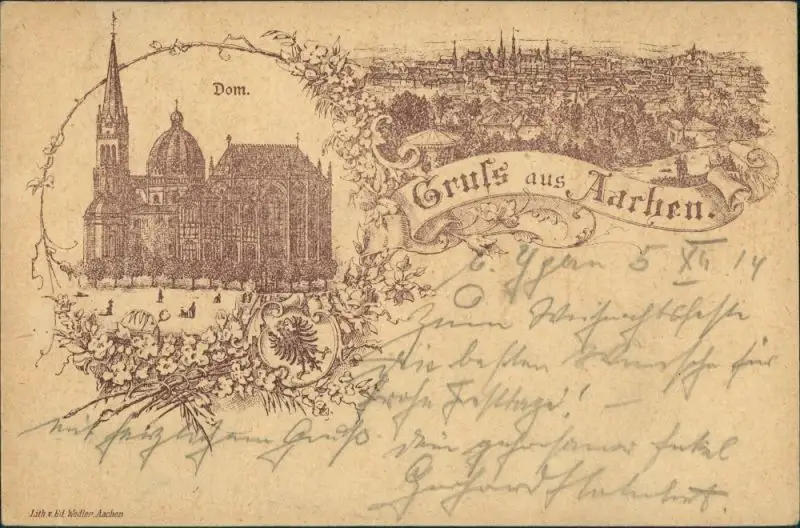 Dom.
Gruss aus Aachen.
5 XII 14
Zum Weihnachtsfeste
die besten Wünsche für
frohe Festtage! —
mit herzlichem Gruß
dein gehorsamer Enkel
Gerhard
Lith. v. Ed. Wedler, Aachen